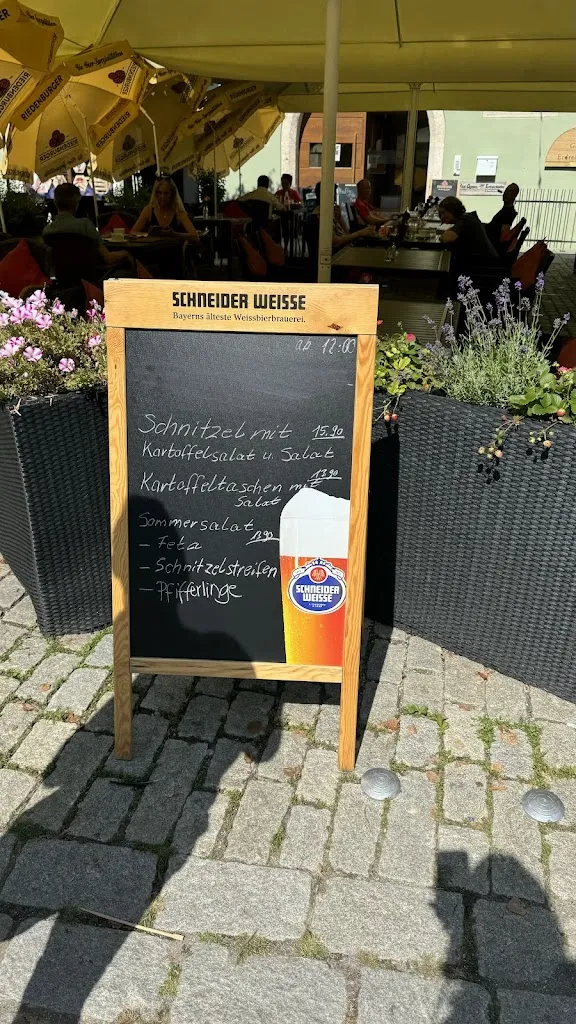 RIEDENBURGER
SCHNEIDER WEISSE
Bayerns älteste Weissbierbrauerei.
ab 12:00
Schnitzel mit 15,90
Kartoffelsalat u. Salat
Kartoffeltaschen mit 13,90
Salat
Sommersalat
13,90
- Feta
- Schnitzelstreifen
- Pfifferlinge
SCHNEIDER
WEISSE